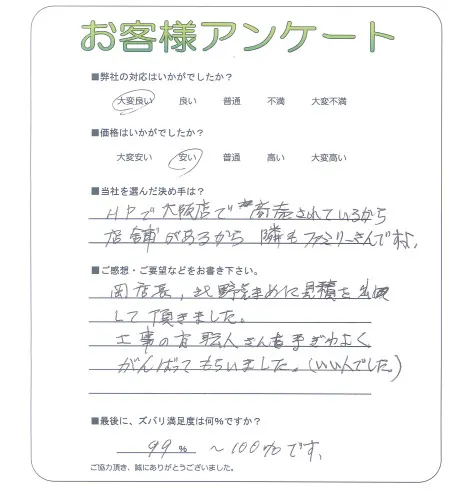 お客様アンケート
■弊社の対応はいかがでしたか？
大変良い 良い 普通 不満 大変不満
■価格はいかがでしたか？
大変安い 安い 普通 高い 大変高い
■当社を選んだ決め手は？
HPで大阪店で商売されているから
店舗があるから 隣もファミリーさんですよ。
■ご感想・ご要望などをお書き下さい。
岡店長、北野さまめに見積を
して頂きました。
工事の方職人さん達手ぎわよく
がんばってもらいました。(いい人でした。)
■最後に、ズバリ満足度は何%ですか？
99% ～100%です。
ご協力頂き、誠にありがとうございました。